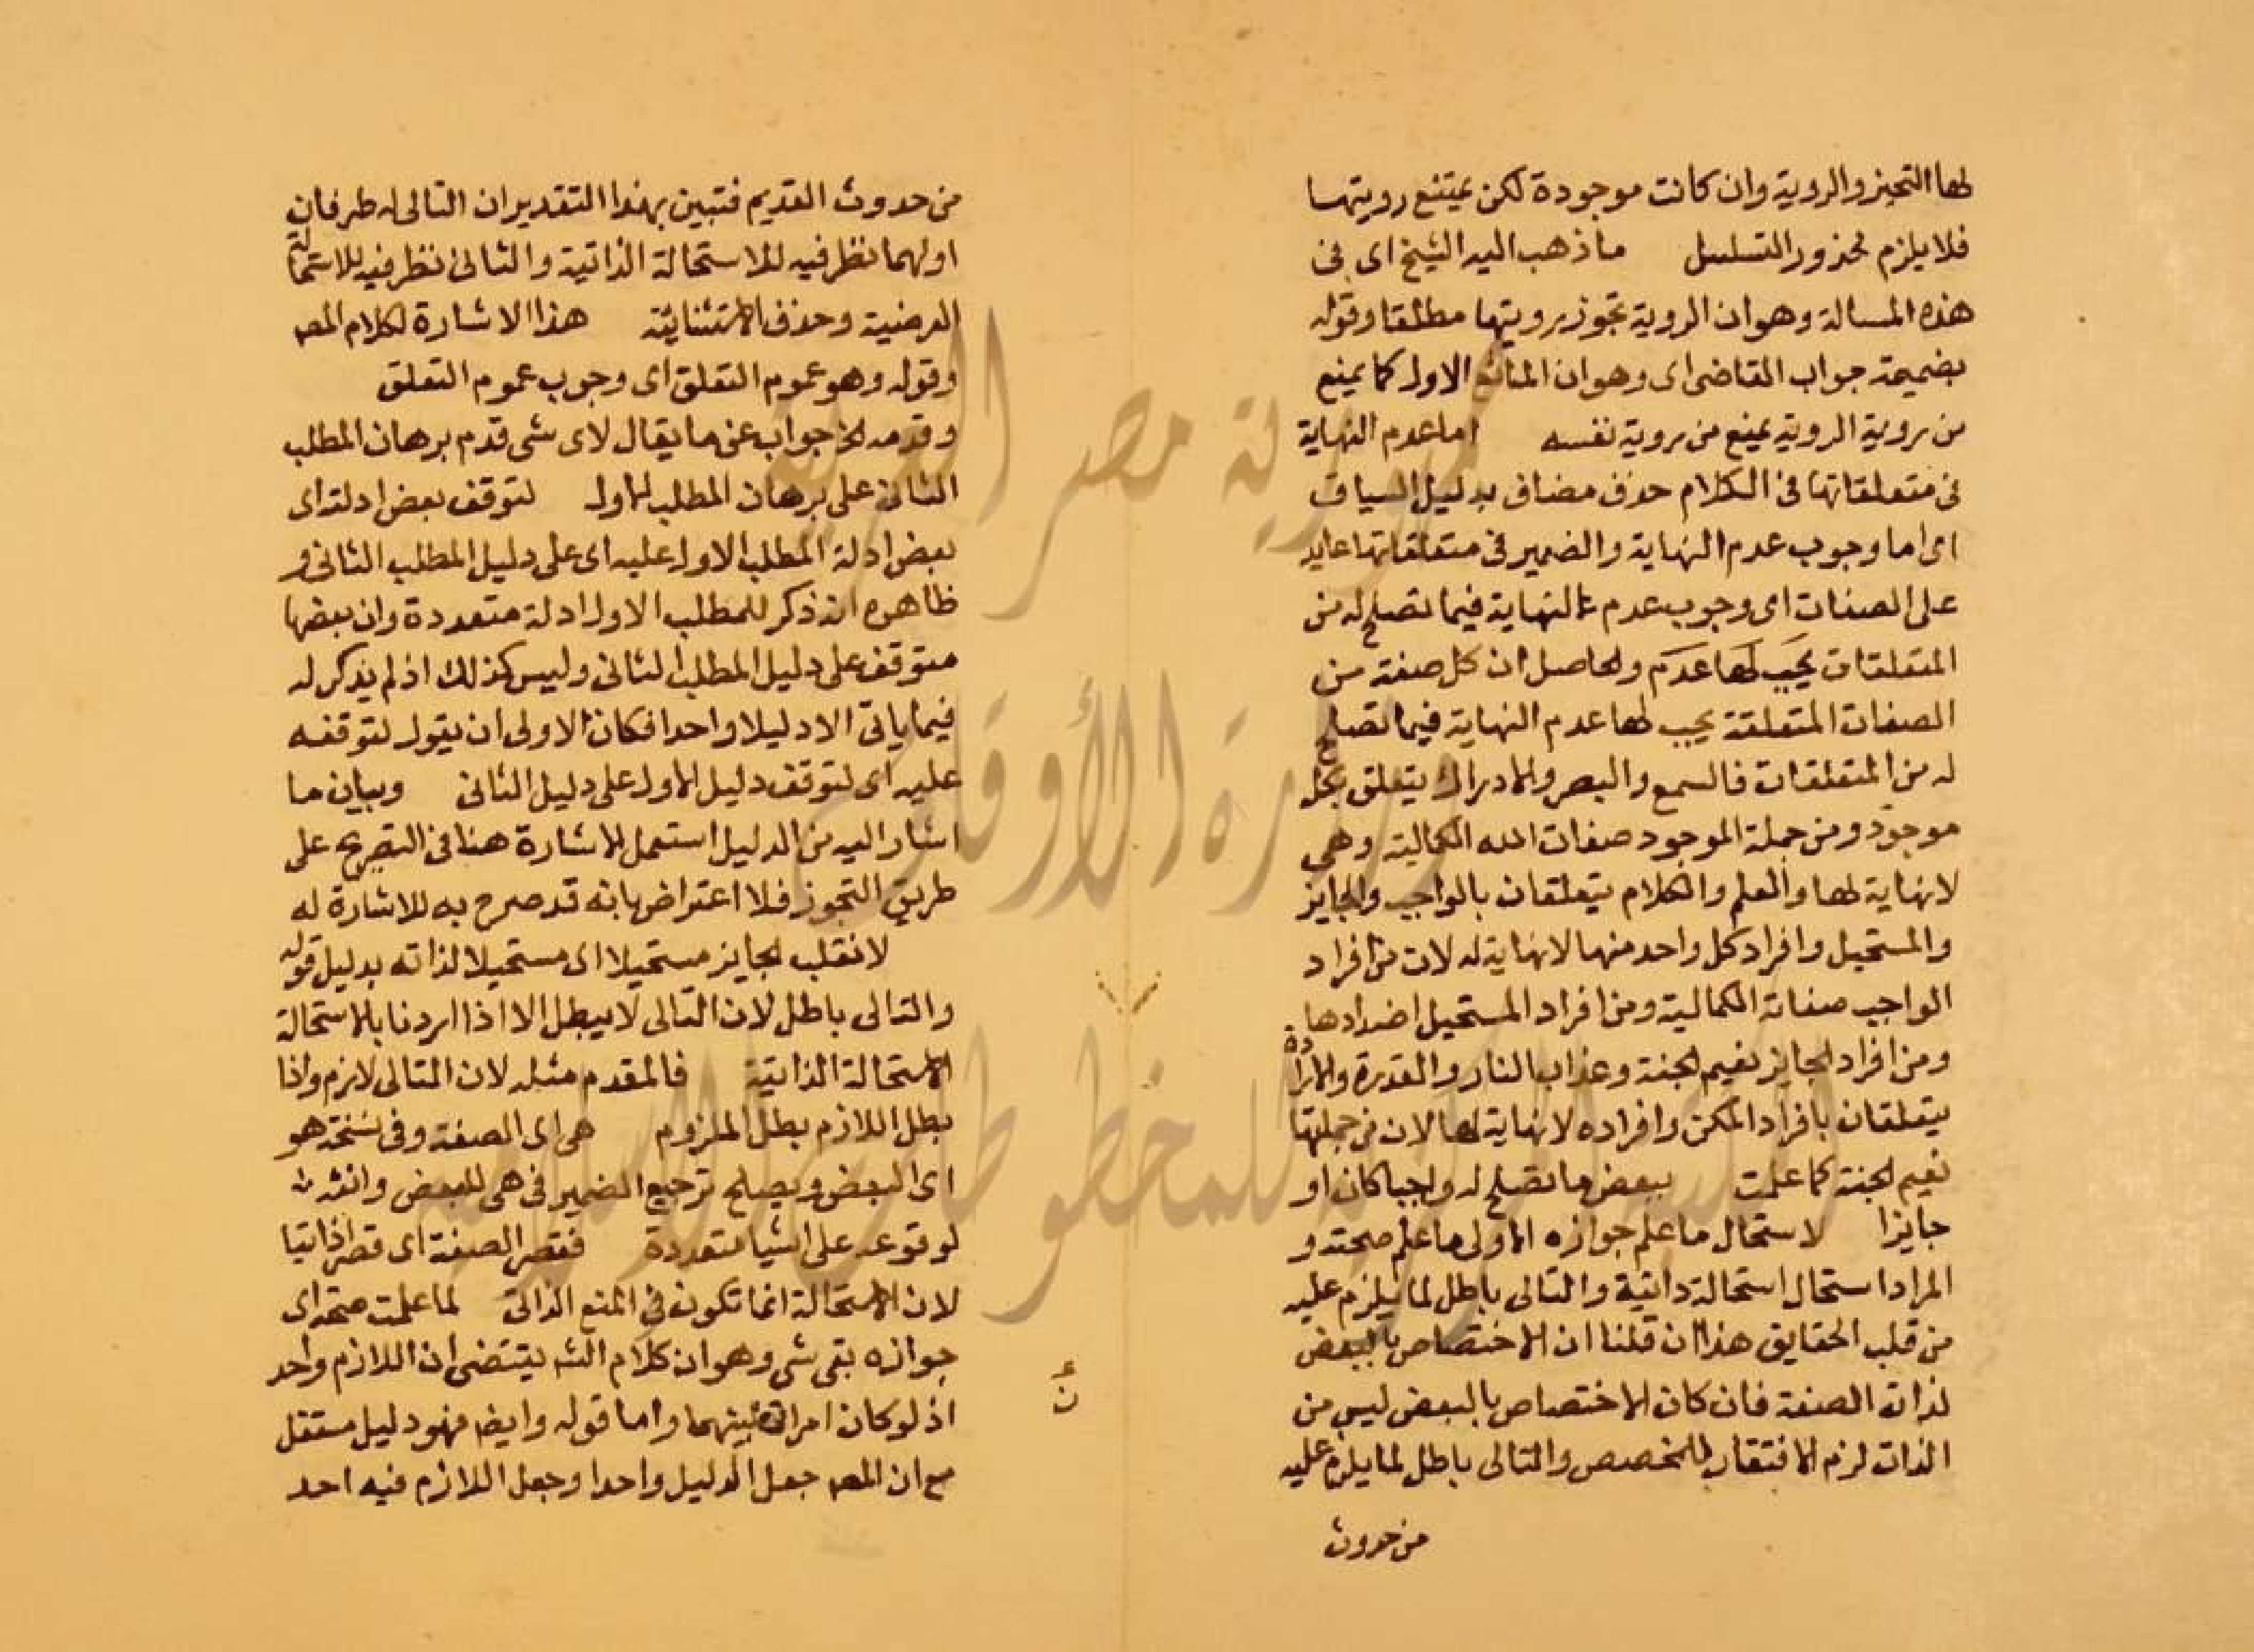 لها التحيز والروية وان كانت موجودة لكن يمتنع رويتها
فلا يلزم محذور التسلسل ما ذهب اليه الشيخ اى فى
هذه المسالة وهو ان الروية تجوز رويتها مطلقا وقوله
بضميمة جواب القاضى اى وهو ان المانع الاول كما يمنع
من روية الروية يمنع من روية نفسه اما عدم النهاية
فى متعلقاتها فى الكلام حذف مضاف بدليل السياق
اى اما وجوب عدم النهاية والضمير فى متعلقاتها عايد
على الصفات اى وجوب عدم النهاية فيما تصلح له من
المتعلقات يجب لها عدم والحاصل ان كل صفة من
الصفات المتعلقة يجب لها عدم النهاية فيما تصلح
له من المتعلقات فالسمع والبصر والادراك يتعلق بكل
موجود ومن جملة الموجود صفات الله الكمالية وهى
لا نهاية لها والعلم والكلام يتعلقان بالواجب والجايز
والمستحيل وافراد كل واحد منها لا نهاية له لان من افراد
الواجب صفاته الكمالية ومن افراد المستحيل اضدادها
ومن افراد الجايز نعيم الجنة وعذاب النار والقدرة والارادة
يتعلقان بافراد الممكن وافراده لا نهاية لها لان من جملتها
نعيم الجنة كما علمت ببعض ما تصلح له واجبا كان او
جايزا لاستحال ما علم جوازه الاولى ما علم صحته و
المراد استحال استحالة ذاتية والتالى باطل لما يلزم عليه
من قلب الحقايق هذا ان قلنا ان الاختصاص بالبعض
لذات الصفة فان كان الاختصاص بالبعض ليس من
الذات لزم الافتقار للمخصص والتالى باطل لما يلزم عليه
من حدوث
من حدوث القديم فتبين بهذا التقدير ان التالى له طرفان
اولهما نظر فيه للاستحالة الذاتية والثانى نظر فيه للاستحالة
العرضية وحذف الاستثنائية هذا الاشارة لكلام المص
وقوله وهو عموم التعلق اى وجوب عموم التعلق
وقدمه الخ جواب عن ما يقال لاى شى قدم برهان المطلب
الثانى على برهان المطلب الاول لتوقف بعض ادلته اى
بعض ادلة المطلب الاول عليه اى على دليل المطلب الثانى و
ظاهره انه ذكر للمطلب الاول ادلة متعددة وان بعضها
متوقف على دليل المطلب الثانى وليس كذلك اذ لم يذكر له
فيما ياتى الا دليلا واحدا فكان الاولى ان يقول لتوقفه
عليه اى لتوقف دليل الاول على دليل الثانى وبيان ما
اشار اليه من الدليل استعمل الاشارة هنا فى التصريح على
طريق التجوز فلا اعتراض بانه قد صرح به للاشارة له
لانقلب الجايز مستحيلا اى مستحيلا لذاته بدليل قوله
والتالى باطل لان التالى لا يبطل الا اذا اردنا بالاستحالة
الاستحالة الذاتية فالمقدم مثله لان التالى لازم واذا
بطل اللازم بطل الملزوم هى اى الصفة وفى نسخة هو
اى البعض ويصلح ترجيع الضمير فى هى للبعض وانثه
لوقوعه على اشيا متعددة فقصر الصفة اى قصرا ذاتيا
لان الاستحالة انما تكون فى المنع الذاتى لما علمت صحته اى
جوازه بقى شى وهو ان كلام الش يقتضى ان اللازم واحد
اذ لو كان امران لبينهما واما قوله وايض فهو دليل مستقل
مع ان المص جعل الدليل واحدا وجعل اللازم فيه احد
جمهورية مصر العربية
وزارة الأوقاف